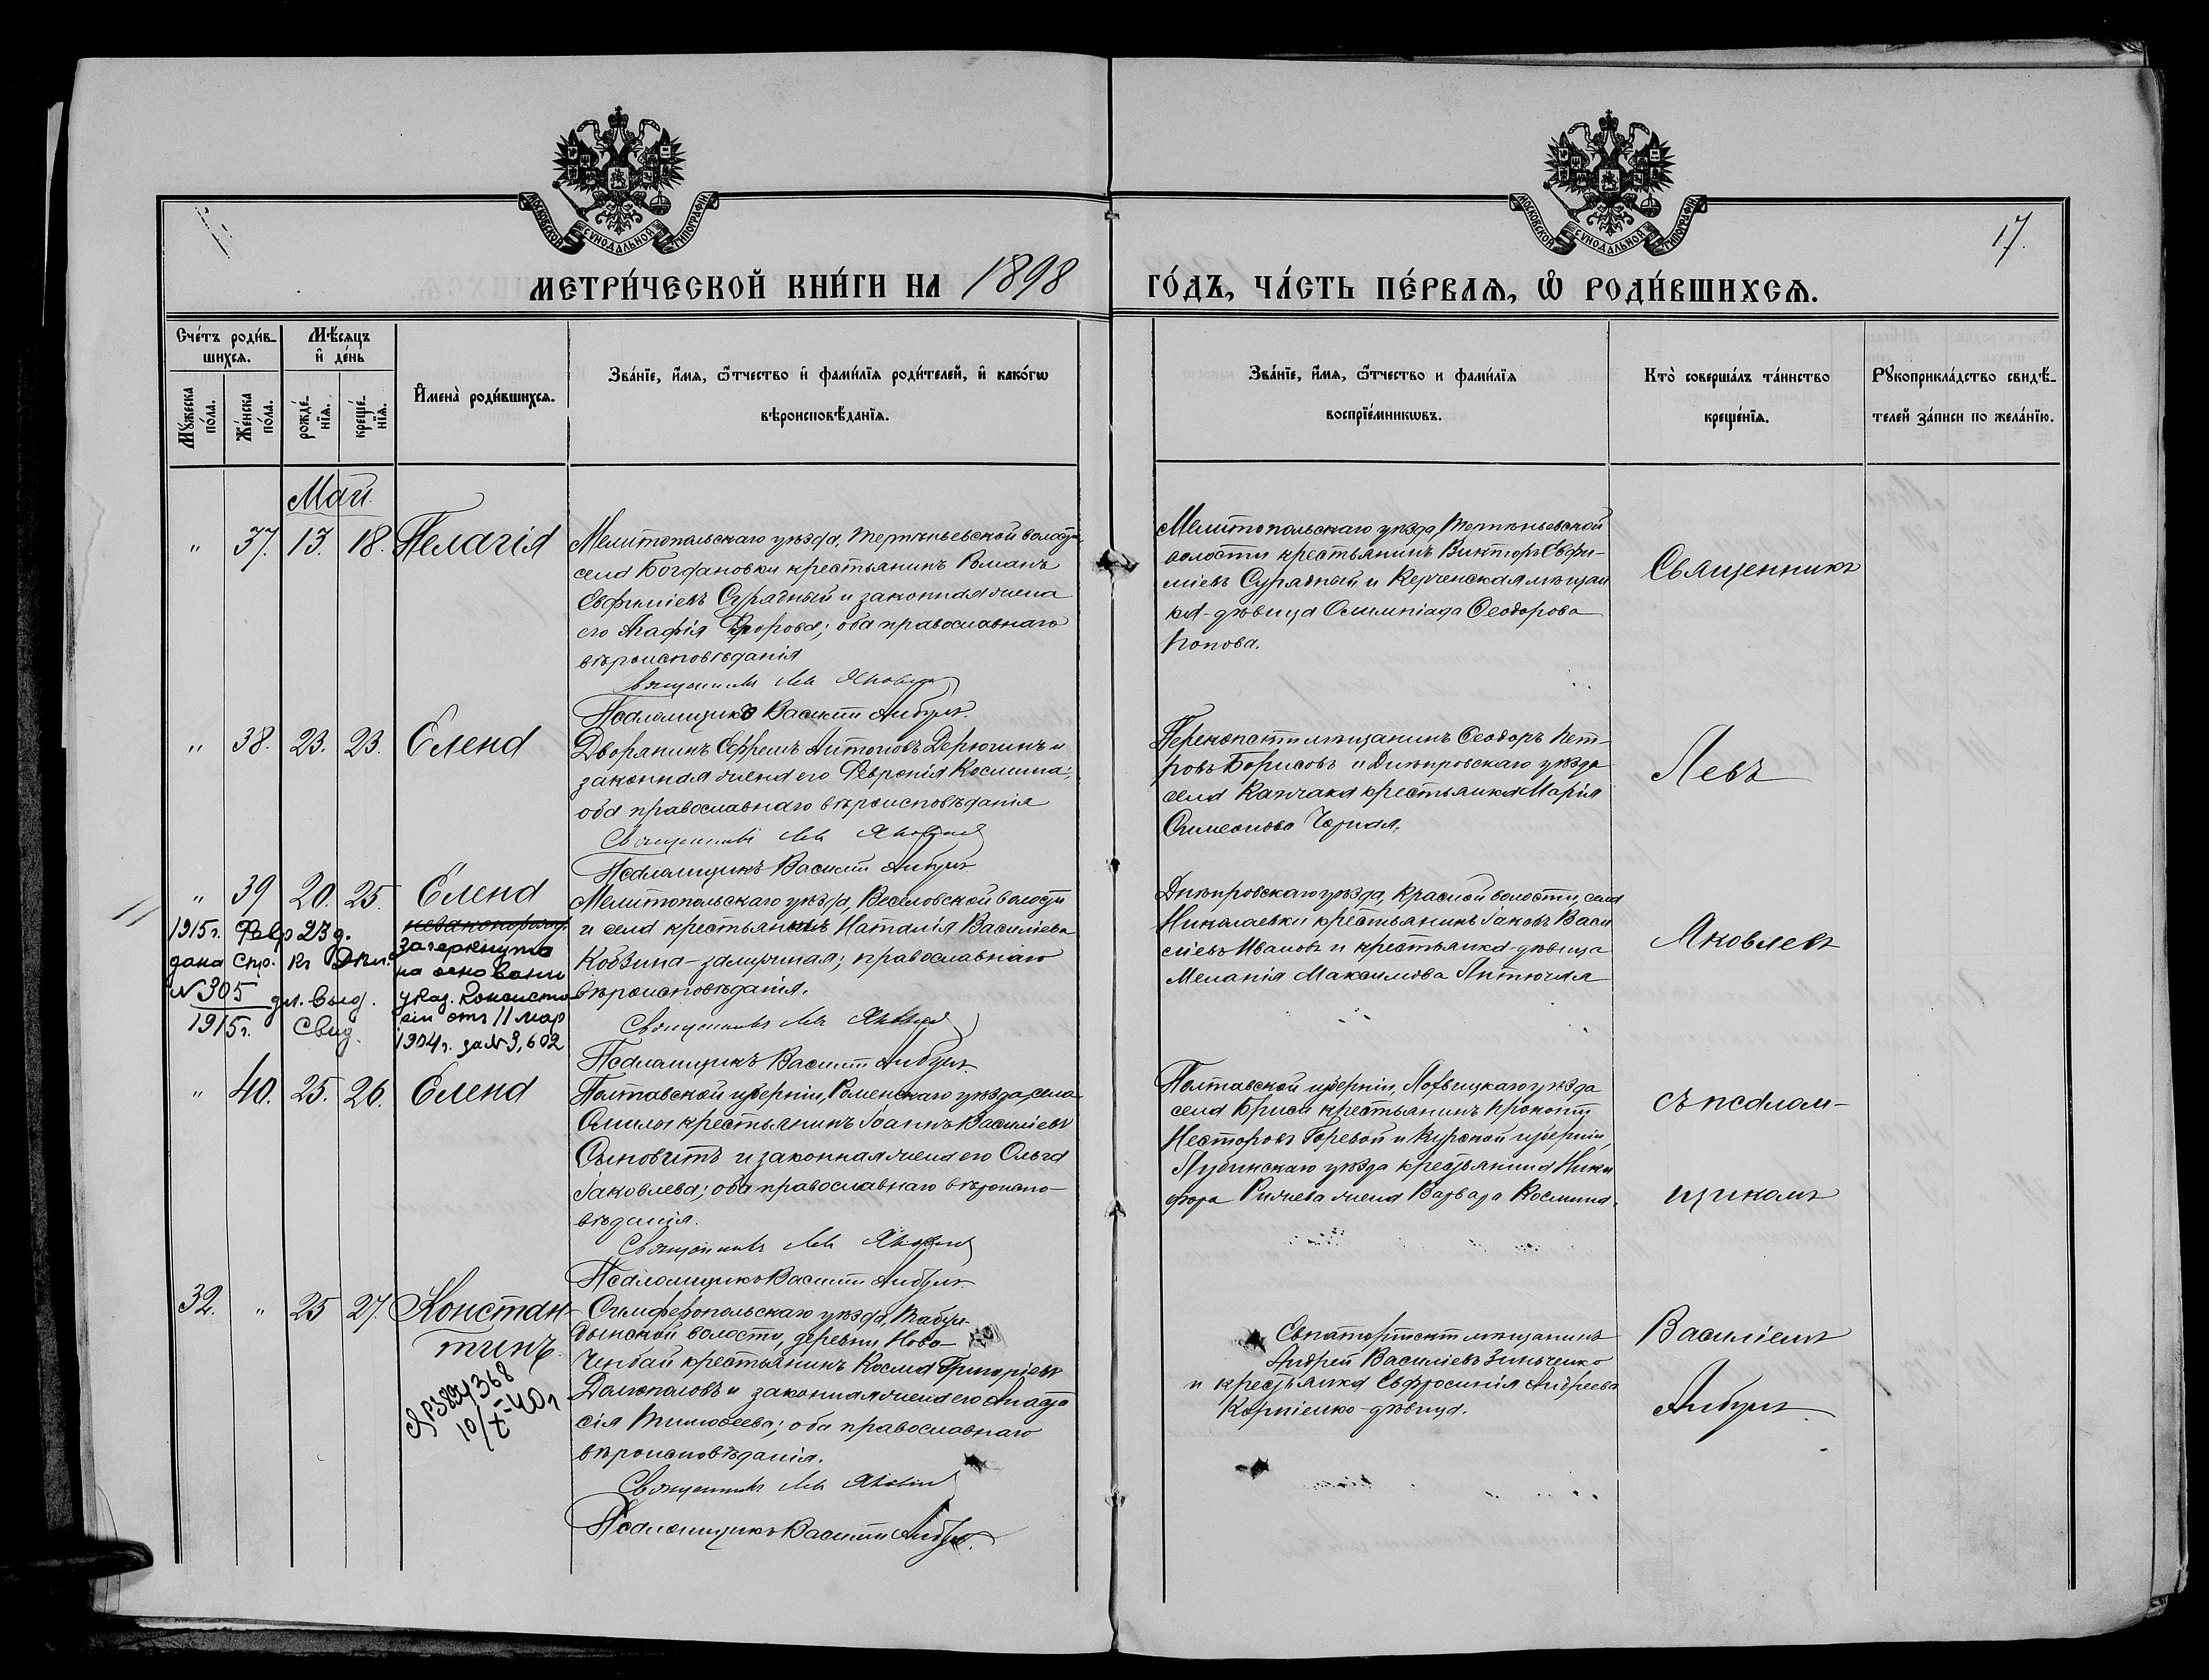 МОСКОВСКОЙ СѴНОДАЛЬНОЙ ТИПОГРАФІИ
МОСКОВСКОЙ СѴНОДАЛЬНОЙ ТИПОГРАФІИ
17.
МЕТРИ́ЧЕСКОЙ КНИ́ГИ НА 1898 ГО́ДЪ, ЧА́СТЬ ПЕ́РВАѦ, Ѡ РОДИ́ВШИХСѦ.
Сче́тъ роди́в-
шихсѧ.
Мѣ́сѧцъ
и҆ де́нь
Мꙋ́жеска
по́ла.
Же́нска
по́ла.
рожде́-
нїѧ.
креще́-
нїѧ.
И҆мена̀ роди́вшихсѧ.
Зва́нїе, и҆́мѧ, ѻ҆́тчество и҆ фами́лїѧ роди́телей, и҆ како́гѡ
вѣроисповѣ́данїѧ.
Зва́нїе, и҆́мѧ, ѻ҆́тчество и фами́лїѧ
воспрїе́мникѡвъ.
Кто̀ соверша́лъ та́инство
креще́нїѧ.
Рꙋкоприкла́дство свидѣ́-
телей за́писи по жела́нїю.
Май.
" 37. 13. 18. Пелагія
Мелитопольскаго уѣзда, Терпѣньевской волости
села Богдановки крестьянинъ Романъ
Евфиміевъ Сурядный и законная жена
его Агафія Егорова; оба православнаго
вѣроисповѣданія
Священникъ Лев Яковлев
Псаломщикъ Василій Анбулъ.
Мелитопольскаго уѣзда, Терпѣньевской
волости крестьянинъ Викторъ Евфи-
міевъ Сурядный и Керченская мѣщан
ка-дѣвица Олимпіада Ѳеодорова
Попова.
Священникъ
" 38. 23. 23. Елена
Дворянинъ Ефремъ Антоновъ Дерюгинъ и
законная жена его Февронія Космина;
оба православнаго вѣроисповѣданія
Священникъ Лев Яковлев
Псаломщикъ Василій Анбулъ.
Перекопскій мѣщанинъ Ѳеодоръ Пет-
ровъ Борисовъ и Днѣпровскаго уѣзда
села Каичака крестьянка Марія
Симеонова Черная.
Левъ
" 39 20. 25. Елена
зачеркнуто
на основаніи
указ. Консисто-
ріи отъ 11 мар
1904 г. за № 3,602
1915 г. Февр 23 д.
дана спр.
№ 305
1915 г.
Мелитопольскаго уѣзда, Веселовской волости
и села крестьянка Наталія Василіева
Кобзина-замужняя; православнаго
вѣроисповѣданія.
Священникъ Лев Яковлев
Псаломщикъ Василій Анбулъ.
Днѣпровскаго уѣзда, Красной волости, села
Николаевки крестьянинъ Іаковъ Васи
ліевъ Ивановъ и крестьянка-дѣвица
Меланія Максимова
Яковлевъ
" 40. 25. 26. Елена
Полтавской губерніи, Роменскаго уѣзда, села
Смилы крестьянинъ Іоаннъ Василіевъ
Сыновитъ и законная жена его Ольга
Іаковлева; оба православнаго вѣроиспо-
вѣданія.
Священникъ Лев Яковлев
Псаломщикъ Василій Анбулъ.
Полтавской губерніи, Лохвицкаго уѣзда
села Бриси крестьянинъ Прокопій
Несторовъ Горевой и Курской губерніи,
уѣзда крестьянина Ники
фора жена Варвара Космина.
съ псалом-
щикомъ
32. " 25 27. Констан-
тинъ.
Симферопольскаго уѣзда, Табул-
дынской волости, деревни Ново-
Ченбай крестьянинъ Косма Григоріевъ
Долгополовъ и законная жена его Анаста
сія Тимоѳеева; оба православнаго
вѣроисповѣданія.
Священникъ Лев Яковлев
Псаломщикъ Василій Анбулъ.
Евпаторійскій мѣщанинъ
Андрей Василіевъ Зинченко
и крестьянка Евфросинія Андреева
Корніенко-дѣвица.
Василіемъ
Анбулъ.